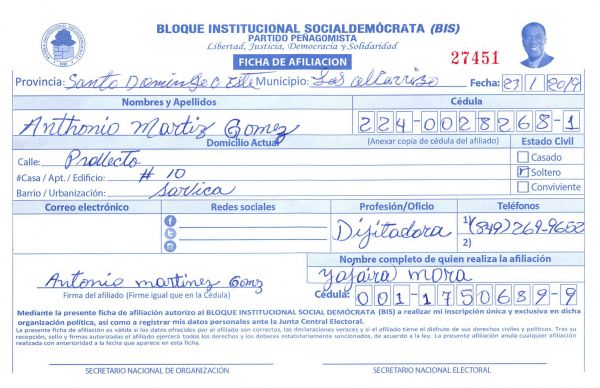 BLOQUE INSTITUCIONAL SOCIALDEMÓCRATA (BIS)
PARTIDO PEÑAGOMISTA
Libertad, Justicia, Democracia y Solidaridad
FICHA DE AFILIACION
27451
Provincia: Santo Domingo Este Municipio: Los alcarrizo Fecha: 23 1 2019
Nombres y Apellidos
Cédula
Anthonio Martiz Gomez
224-0028268-1
Domicilio Actual
(Anexar copia de cédula del afiliado)
Estado Civil
Calle: Prollecto
Casado
#Casa / Apt. / Edificio: # 10
Soltero
Barrio / Urbanización: Savica
Conviviente
Correo electrónico
Redes sociales
Profesión/Oficio
Teléfonos
Dijitadora
1) (849) 269-9652
2)
Nombre completo de quien realiza la afiliación
Yajaira mora
Antonio martinez
Firma del afiliado (Firme igual que en la Cédula)
Cédula: 001-1750689-9
Mediante la presente ficha de afiliación autorizo al BLOQUE INSTITUCIONAL SOCIAL DEMÓCRATA (BIS) a realizar mi inscripción única y exclusiva en dicha
organización política, así como a registrar mis datos personales ante la Junta Central Electoral.
La presente ficha de afiliación es válida si los datos ofrecidos por el afiliado son correctos, las declaraciones veraces y si el afiliado tiene el disfrute de sus derechos civiles y políticos. Tras su
recepción, sello y firmas autorizadas el afiliado ejercerá todos los derechos y los deberes estatutariamente sancionados, de acuerdo a la ley. La presente afiliación anula cualquier afiliación
realizada con anterioridad a la fecha que aparece en esta ficha.
SECRETARIO NACIONAL DE ORGANIZACIÓN
SECRETARIO NACIONAL ELECTORAL